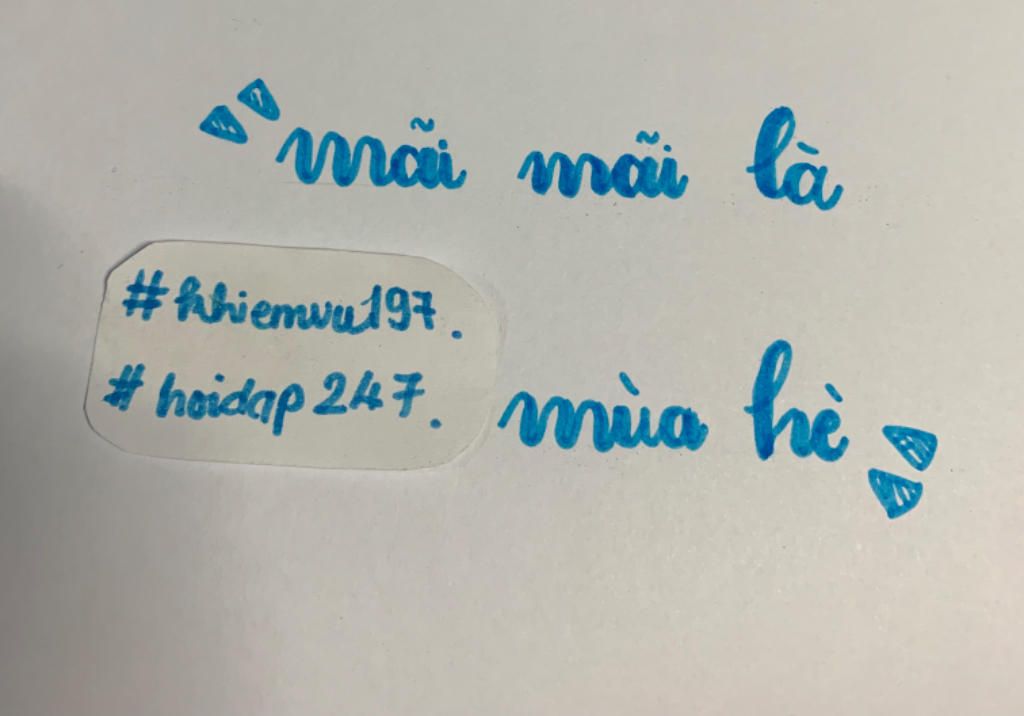 "mãi mãi là
#khiemvu197.
#hoidap247.
mùa hè"